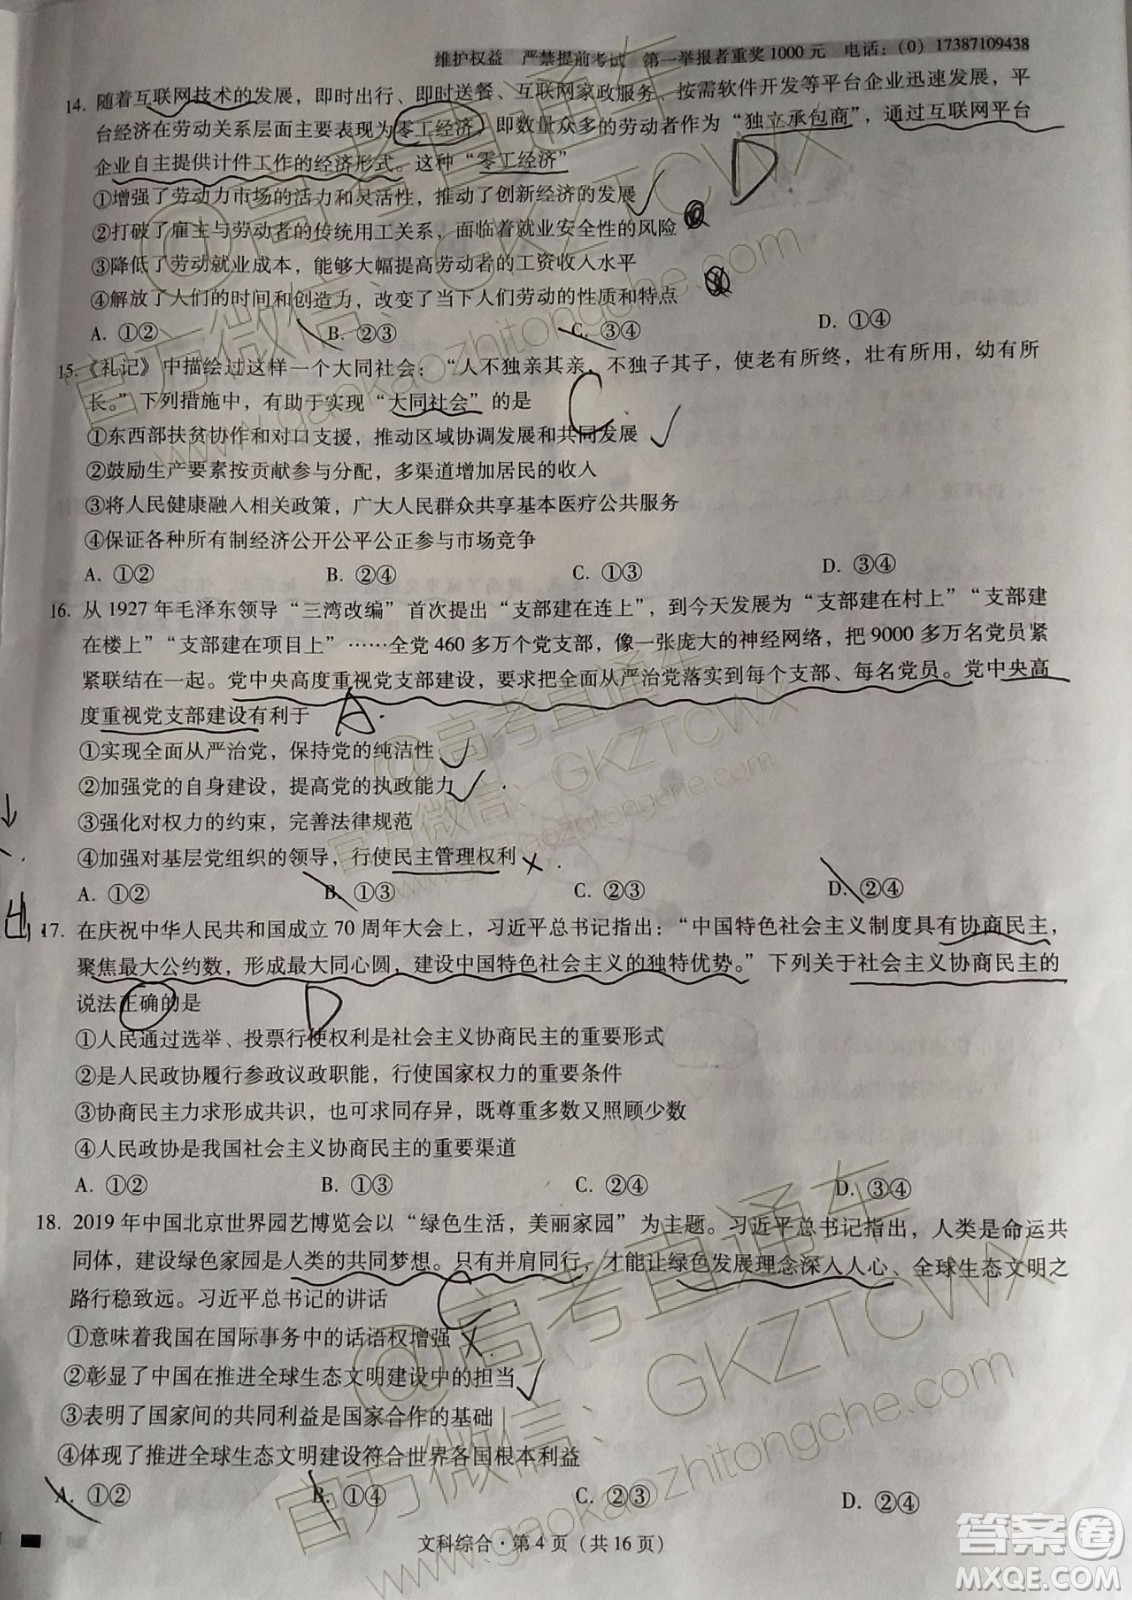 维护权益 严禁提前考试 第一举报者重奖1000元 电话：(0) 17387109438
14. 随着互联网技术的发展，即时出行、即时送餐、互联网家政服务、按需软件开发等平台企业迅速发展，平
台经济在劳动关系层面主要表现为零工经济，即数量众多的劳动者作为“独立承包商”，通过互联网平台
企业自主提供计件工作的经济形式。这种“零工经济”
①增强了劳动力市场的活力和灵活性，推动了创新经济的发展
②打破了雇主与劳动者的传统用工关系，面临着就业安全性的风险
③降低了劳动就业成本，能够大幅提高劳动者的工资收入水平
④解放了人们的时间和创造力，改变了当下人们劳动的性质和特点
A. ①② B. ②③ C. ③④ D. ①④
D
15.《礼记》中描绘过这样一个大同社会：“人不独亲其亲，不独子其子，使老有所终，壮有所用，幼有所
长。”下列措施中，有助于实现“大同社会”的是
C
①东西部扶贫协作和对口支援，推动区域协调发展和共同发展
②鼓励生产要素按贡献参与分配，多渠道增加居民的收入
③将人民健康融入相关政策，广大人民群众共享基本医疗公共服务
④保证各种所有制经济公开公平公正参与市场竞争
A. ①② B. ②④ C. ①③ D. ③④
16. 从1927年毛泽东领导“三湾改编”首次提出“支部建在连上”，到今天发展为“支部建在村上”“支部建
在楼上”“支部建在项目上”……全党460多万个党支部，像一张庞大的神经网络，把9000多万名党员紧
紧联结在一起。党中央高度重视党支部建设，要求把全面从严治党落实到每个支部、每名党员。党中央高
度重视党支部建设有利于
A
①实现全面从严治党，保持党的纯洁性
②加强党的自身建设，提高党的执政能力
③强化对权力的约束，完善法律规范
④加强对基层党组织的领导，行使民主管理权利
A. ①② B. ①③ C. ②③ D. ②④
17. 在庆祝中华人民共和国成立70周年大会上，习近平总书记指出：“中国特色社会主义制度具有协商民主，
聚焦最大公约数，形成最大同心圆，建设中国特色社会主义的独特优势。”下列关于社会主义协商民主的
说法正确的是
D
①人民通过选举、投票行使权利是社会主义协商民主的重要形式
②是人民政协履行参政议政职能，行使国家权力的重要条件
③协商民主力求形成共识，也可求同存异，既尊重多数又照顾少数
④人民政协是我国社会主义协商民主的重要渠道
A. ①② B. ①③ C. ②④ D. ③④
18. 2019年中国北京世界园艺博览会以“绿色生活，美丽家园”为主题。习近平总书记指出，人类是命运共
同体，建设绿色家园是人类的共同梦想。只有并肩同行，才能让绿色发展理念深入人心、全球生态文明之
路行稳致远。习近平总书记的讲话
C
①意味着我国在国际事务中的话语权增强
②彰显了中国在推进全球生态文明建设中的担当
③表明了国家间的共同利益是国家合作的基础
④体现了推进全球生态文明建设符合世界各国根本利益
A. ①② B. ①④ C. ②③ D. ②④
文科综合·第4页（共16页）
@高考直通车
官方微信：GKZTCWX
www.gaokaozhitongche.com
@高考直通车
官方微信：GKZTCWX
www.gaokaozhitongche.com
@高考直通车
官方微信：GKZTCWX
www.gaokaozhitongche.com
答案圈
MXQE.COM